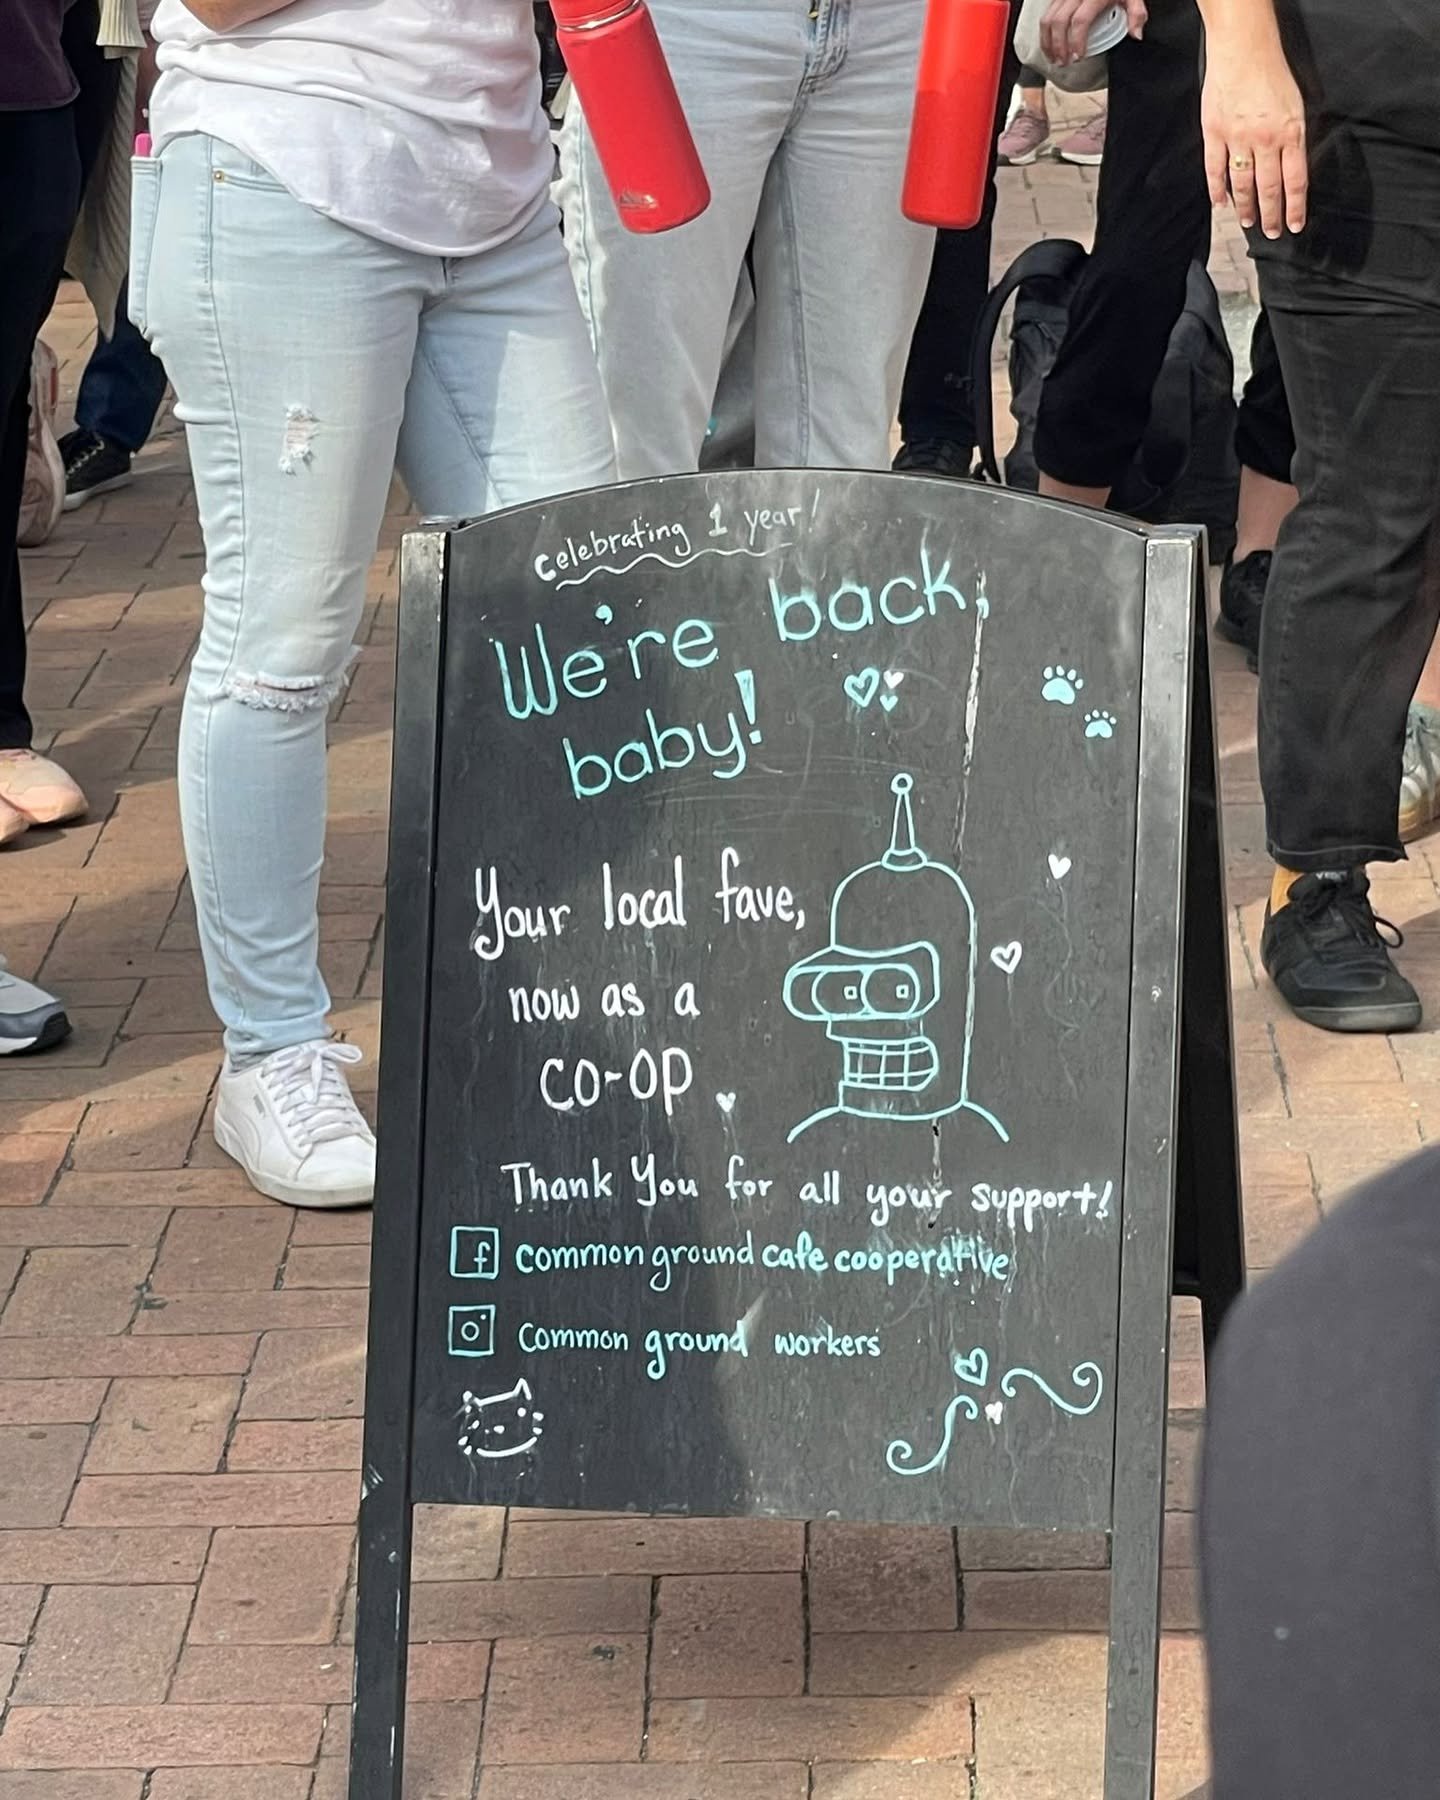 celebrating 1 year!
We're back,
baby!
Your local fave,
now as a
co-op
Thank You for all your support!
f common ground cafe cooperative
Common ground workers